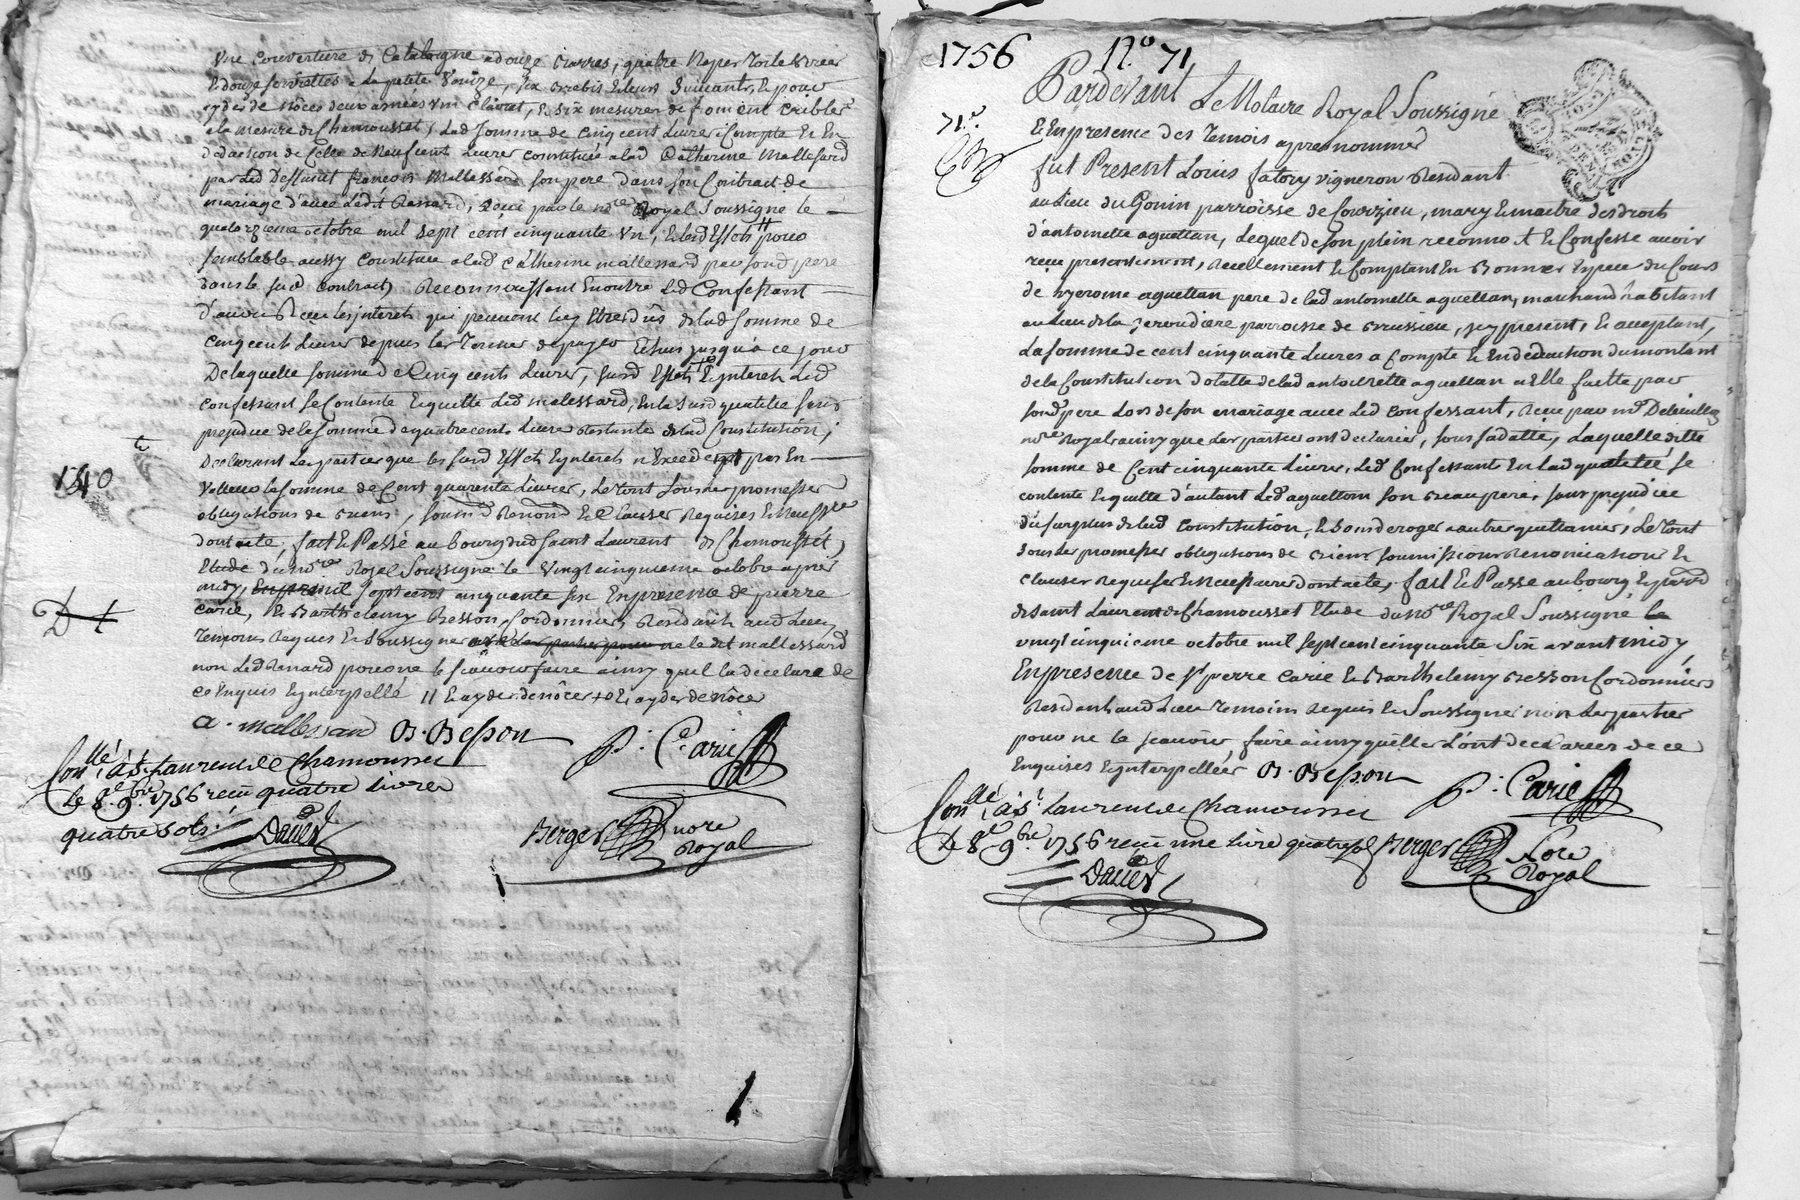 Une Couverture de Catalogne a douze barres, quatre Napes toile
Et douze serviettes a la petite Venize, six brebis et leurs suivants, Et pour
de nôces deux années un Et six mesures de froment
a la mesure de Chamousset, Lad. somme de Cinq cent Livres a Compte Et En
deduction de Celle de Neuf cent Livres constituée a lad. Catherine Mallessard
par led. Deffunt françois Mallessard son pere dans son Contract de
mariage d'avec ledit Renard, recu par le no.re Royal Soussigné le
quatorzieme octobre mil sept cent cinquante un, Et lesd. Effets pour
semblable aussy Constitués a lad. Catherine mallessard par sond. pere
dans le sud. contract, Reconnoissant Enoutre Led. Confessant
D'avoir Receu les jnterets qui peuvent luy Etre dûs de lad. somme de
Cinq cent Livres depuis les Termes de payer Echus jusqu'a ce jour
De laquelle somme de Cinq cents Livres, susd. Effets Et jnterets Led.
Confessant se Contente Et quitte Led. malessard, En la susd. qualité sans
prejudice de la somme de quatre cents Livres Restante de lad. Constitution,
Declarant Les parties que les susd. Effets Et jnterets n'Excedent pas En
140
Valleur la somme de Cent quarente Livres, Le tout sous les promesses
obligations de biens, soumd. Renond. Et Clauses Requises Et Necessres
dont acte, fait Et Passé au bourg dud. saint Laurent de Chamousset,
Etude du no.re Royal Soussigné le vingt cinquieme octobre après
midy, mil sept cent cinquante six En presence de pierre
Carie, Et Barthelemy Besson, Cordonniers Residants aud. Lieu,
Temoins Requis Et Soussignés ledit mallessard
non Led. Renard pour ne le sçavoir faire ainsy qu'il la declaré de
ce Enquis Et jnterpellé // Et ayder de nôce Et ayder de nôce
a. mallessard B. Besson P. Carie
Con.llé à S.t Laurent de Chamousset
Le 8.e 9.bre 1756 receu quatre Livres
quatre sols. Daved
Berger nore Royal
1756 N.o 71
Pardevant Le Notaire Royal Soussigné
71.e
Et En presence des Temoins apres nommés
fut Present Louis fatory vigneron Residant
au Lieu du Gonin parroisse de Courzieu, mary Et maitre des droits
d'antoinette aguettan, Lequel de son plein reconnoit Et Confesse avoir
receu presentement, reellement Et Comptant En bonnes Especes du Cours
de hyerome aguettan pere de lad. antoinette aguettan, marchand habitant
au Lieu de la Geroudiere parroisse de Brussieu, jcy present, Et acceptant,
La somme de cent cinquante Livres a Compte Et En deduction du montant
de la Constitution dotalle de lad. antoinette aguettan a Elle faitte par
sond. pere Lors de son mariage avec Led. Confessant, Receu par m.e
no.re Royal, ainsy que Les parties ont declaré, sous sa datte, Laquelle ditte
somme de Cent cinquante Livres, Led. Confessant En lad. qualité se
contente Et quitte d'autant Led. aguettan son beau pere, sans prejudice
du surplus de lad. Constitution, Et sans deroger a autres quittances, Le tout
sous les promesses obligations de biens soumissions Renonciations Et
Clauses Requises Et Necessaires dont acte, fait Et Passé au bourg
de saint Laurent de Chamousset Etude du no.re Royal Soussigné le
vingt cinquieme octobre mil sept cent cinquante Six avant midy,
En presence de S.r pierre Carie Et Barthelemy Besson Cordonniers
Residants aud. Lieu Temoins Requis Et Soussignés non Les parties
pour ne le sçavoir faire ainsy qu'elles L'ont declarées de ce
Enquises Et jnterpellées B. Besson P. Carie
Con.llé à S.t Laurent de Chamousset
Le 8.e 9.bre 1756 receu une livre quatre sols
Daved
Berger Nore Royal